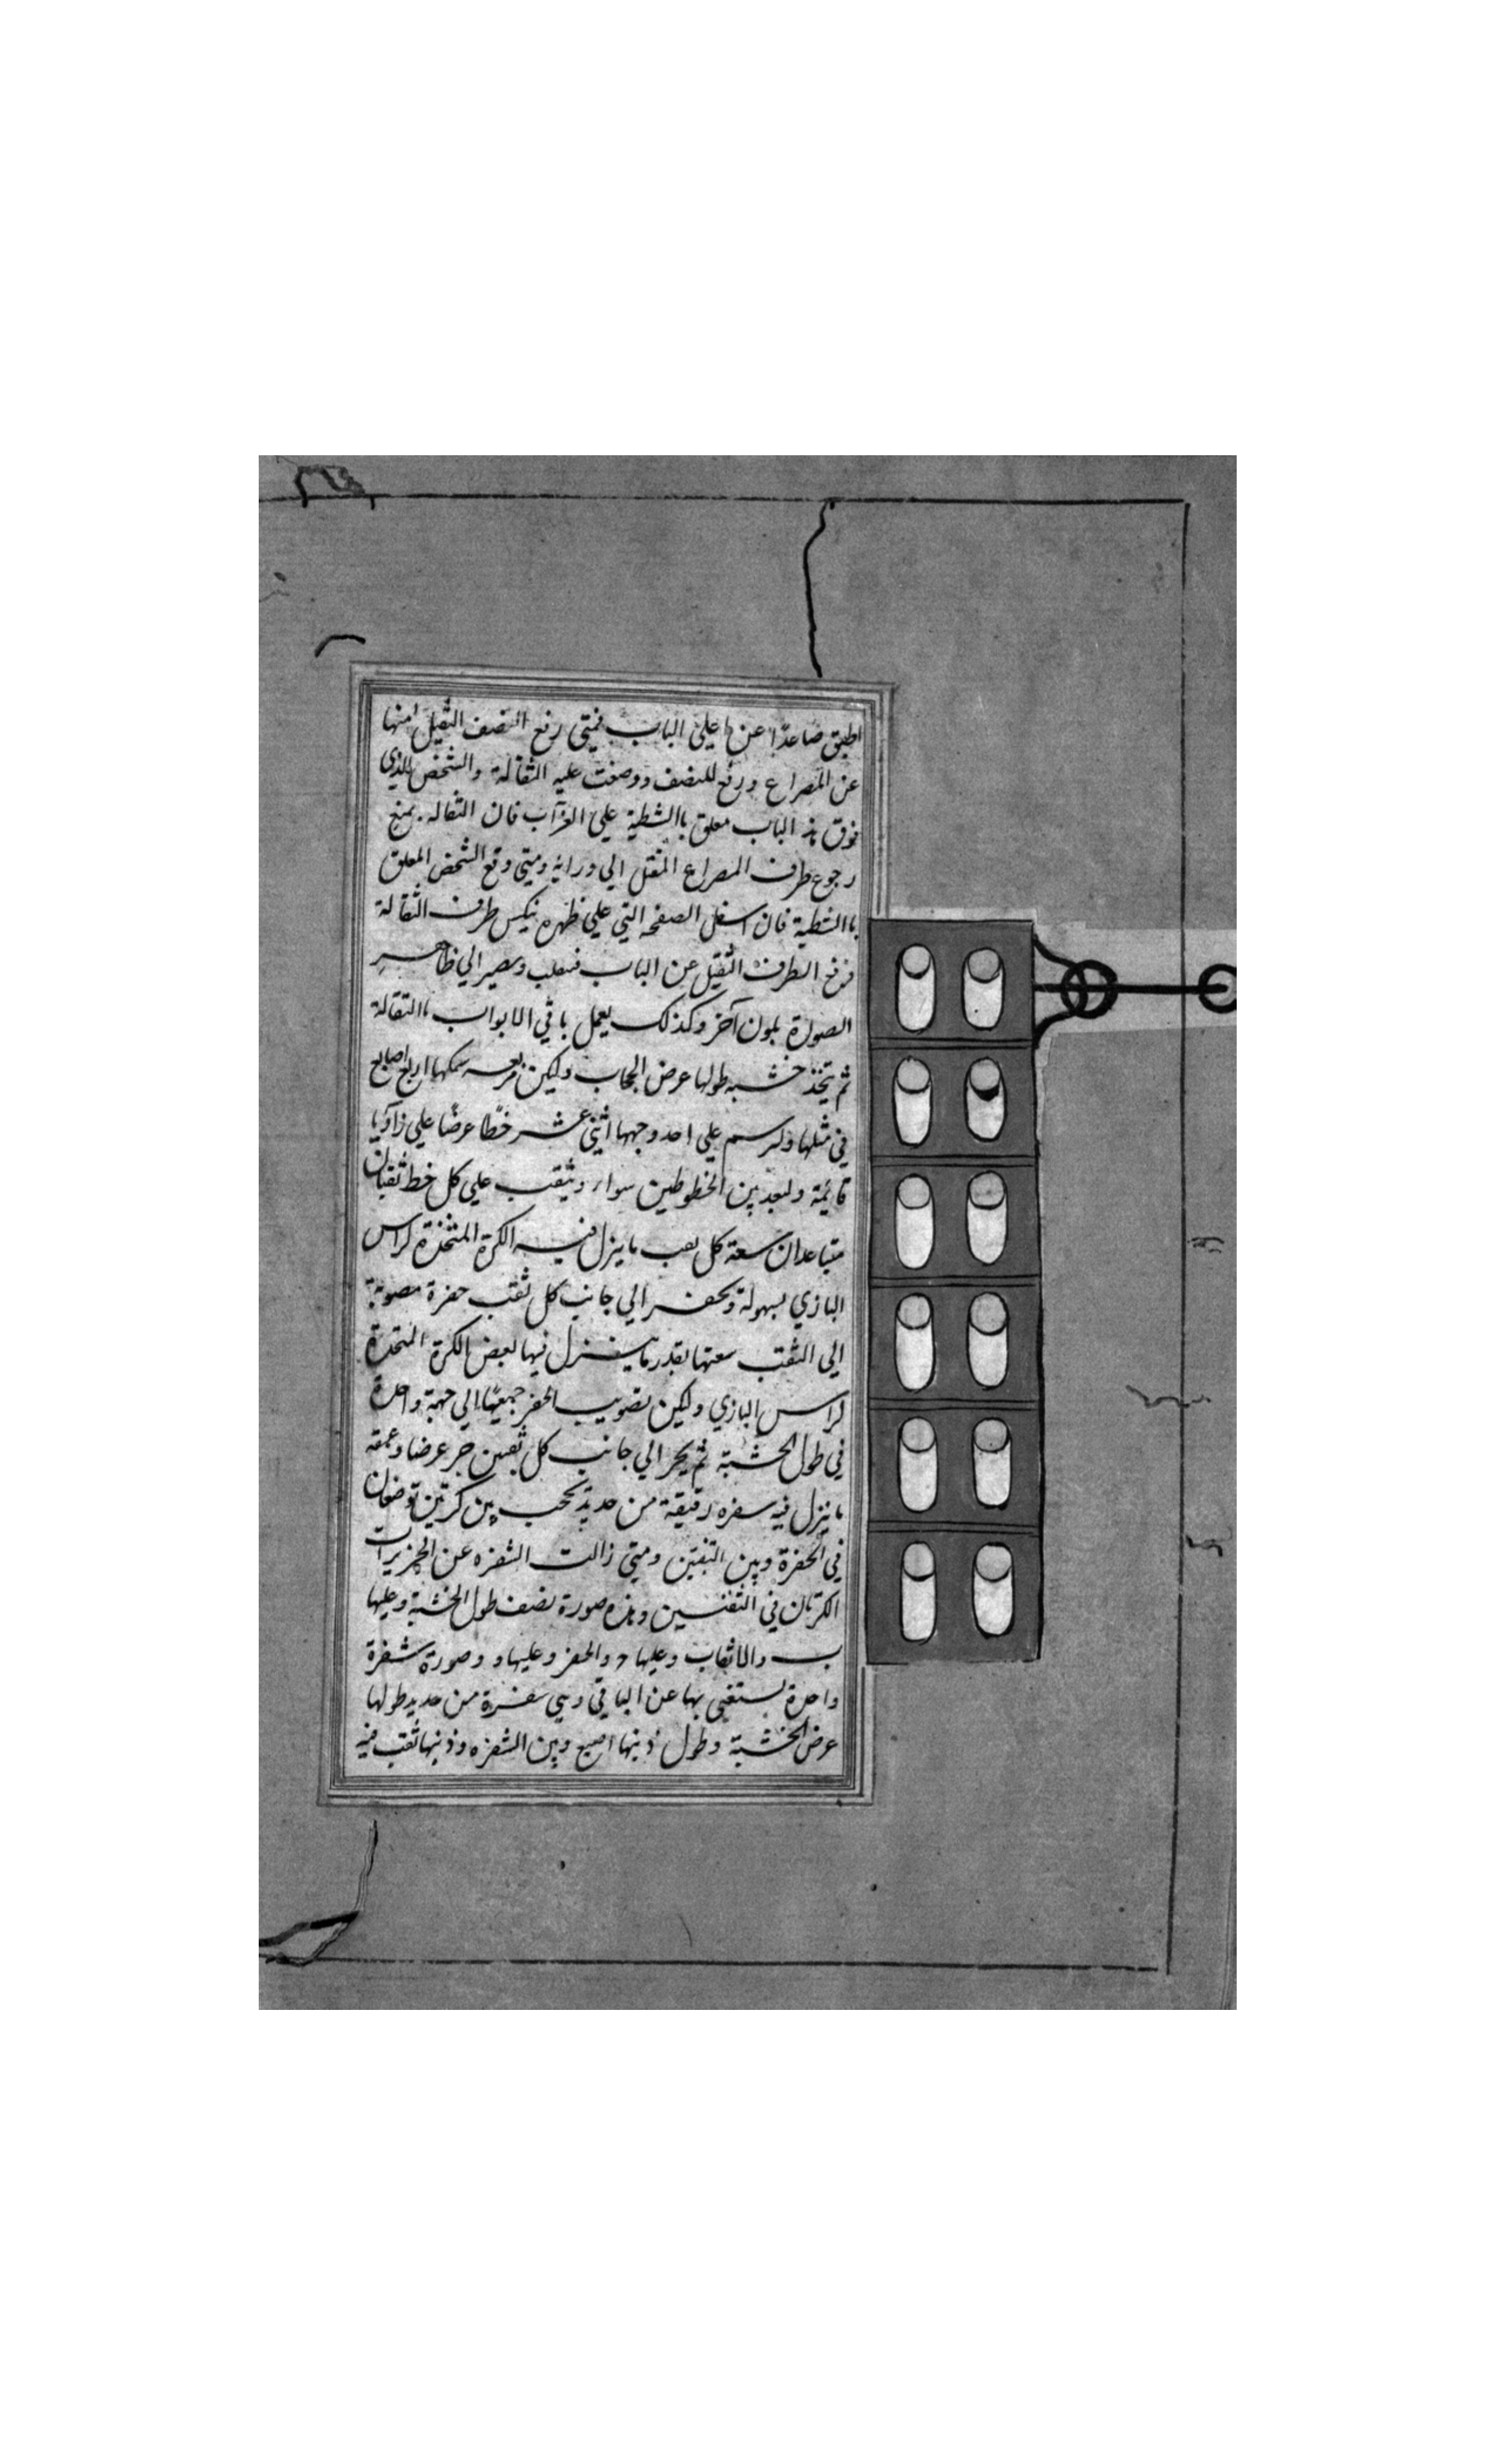 اطبق صاعدًا عن اعلي الباب فمتي رفع النصف الثقيل منها
عن المصراع ورفع للنصف ووضعت عليه الثقالة والشخص الذي
فوق هذ الباب معلق باالشظية علي العزاب فان الثقاله يمنع
رجوع طرف المصراع المثقل الي ورايه ومتي وقع الشخص المعلق
باالشظية فان اسفل الصفحه التي علي ظهره ينكس طرف الثقالة
فرفع الطرف الثقيل عن الباب فينقلب ويصير الي ظاهر
الصورة بلون آخر وكذلك يعمل باقي الابواب باالثقالة
ثم يتخذ خشبه طولها عرض الحجاب وليكن مربعه سمكها اربع اصابع
في مثلها ويرسم علي احد وجهها اثني عشر خطًا عرضًا علي زاويا
قايمة ولبعد بين الخطوطين سوار ويثقب علي كل خط ثقبان
متباعدان سعة كل ثقب ما ينزل فيه الكرة المتخذة كراس
البازي بسهولة ويحفر الي جانب كل ثقب حفرة مصوبة
الي الثقب سعتها بقدر ما ينزل فيها بعض الكرة المتخذة
كراس البازي وليكن تصويب الحفر جميعها الي جهة واحدة
في طول الخشبة ثم يحز الي جانب كل ثقبين حز عرضا وعمقه
ما ينزل فيه سفره رقيقة من حديد تحجب بين كرتين توضعان
في الحفرة وبين الثقبين ومتي زالت الشفره عن الحز نزلت
الكرتان في الثقبين وهذه صورة نصف طول الخشبة وعليها
ب والاثقاب وعليها د والحفر وعليها و وصورة شفرة
واحدة يستغني بها عن الباقي وهي سفرة من حديد طولها
عرض الخشبة وطول ذنبها اصبع وبين الشفره وذنبها ثقب فيه